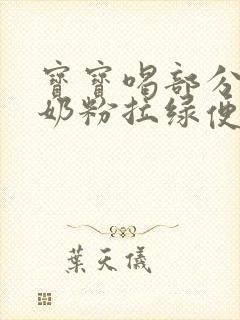 寶寶喝部分
奶粉拉綠便
葉天儀